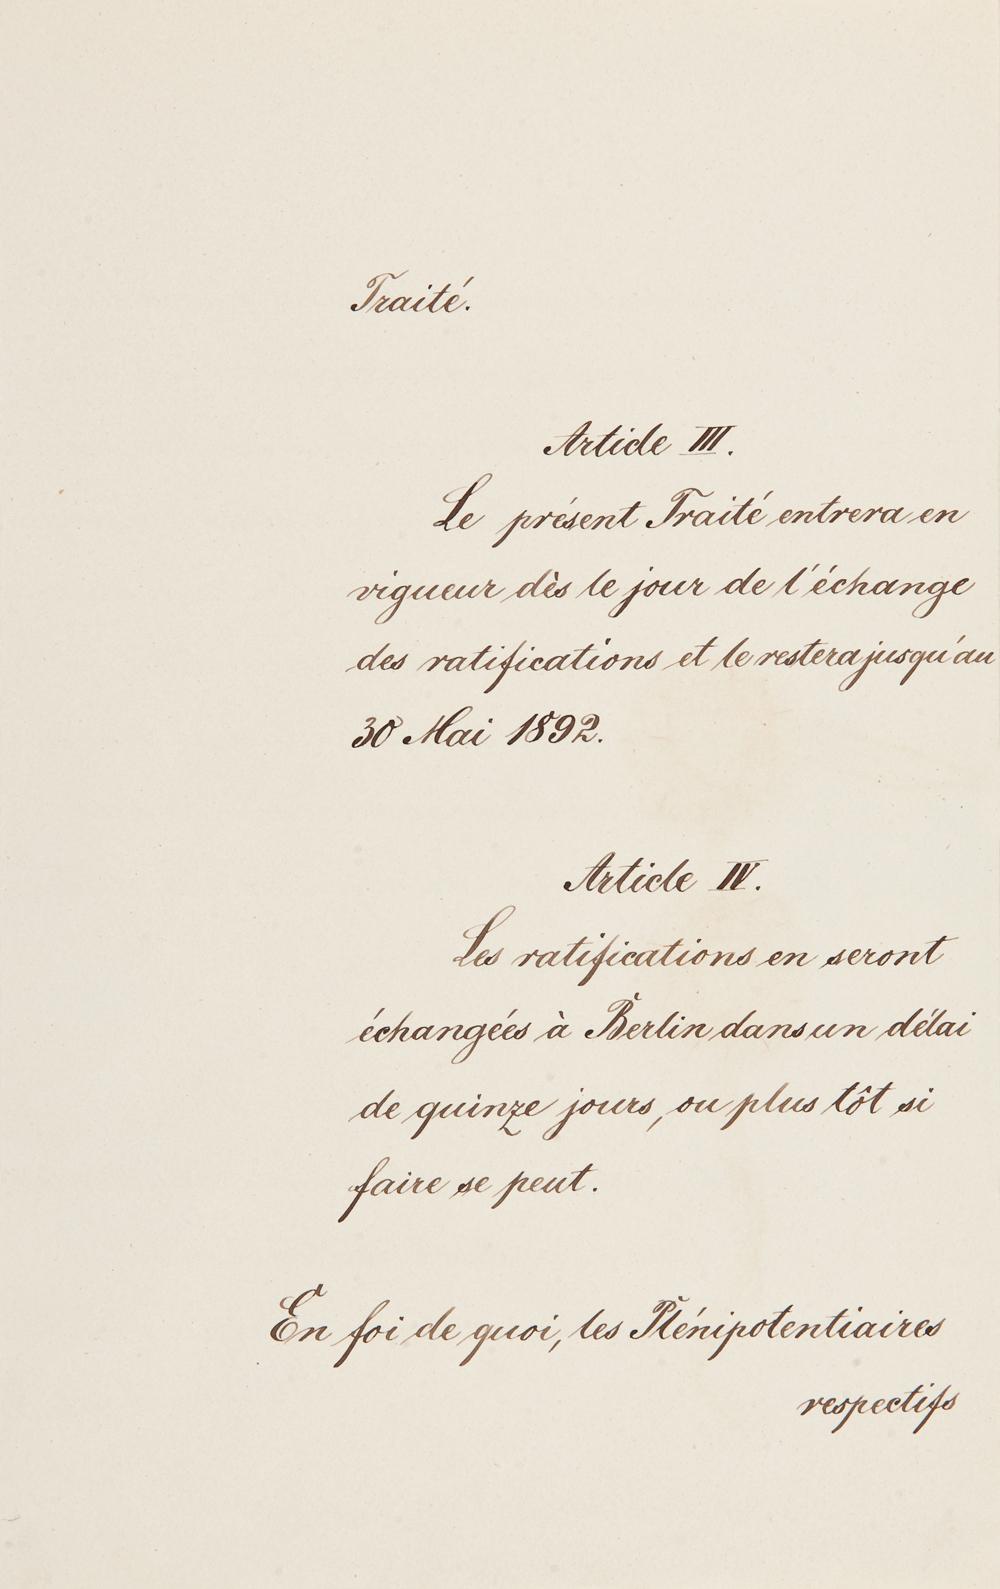 Traité.
Article III.
Le présent Traité entrera en
vigueur dès le jour de l'échange
des ratifications et le restera jusqu'au
30 Mai 1892.
Article IV.
Les ratifications en seront
échangées à Berlin dans un délai
de quinze jours, ou plus tôt si
faire se peut.
En foi de quoi, les Plénipotentiaires
respectifs